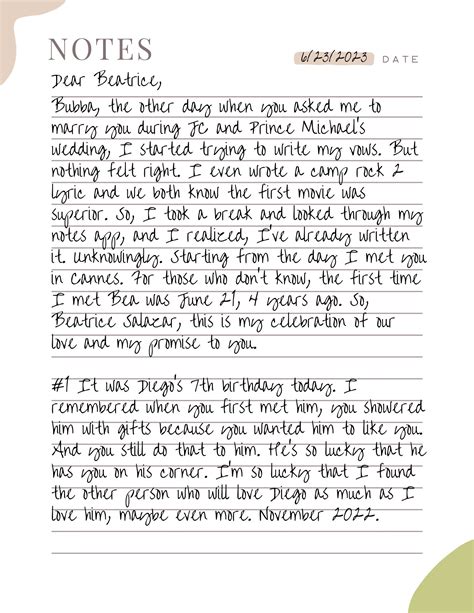 NOTES
6/23/2023 DATE
Dear Beatrice,
Bubba, the other day when you asked me to
marry you during JC and Prince Michael's
wedding, I started trying to write my vows. But
nothing felt right. I even wrote a camp rock 2
lyric and we both know the first movie was
superior. So, I took a break and looked through my
notes app, and I realized, I've already written
it. Unknowingly. Starting from the day I met you
in Cannes. For those who don't know, the first time
I met Bea was June 21, 4 years ago. So,
Beatrice Salazar, this is my celebration of our
love and my promise to you.
#1 It was Diego's 7th birthday today. I
remembered when you first met him, you showered
him with gifts because you wanted him to like you.
And you still do that to him. He's so lucky that he
has you on his corner. I'm so lucky that I found
the other person who will love Diego as much as I
love him, maybe even more. November 2022.